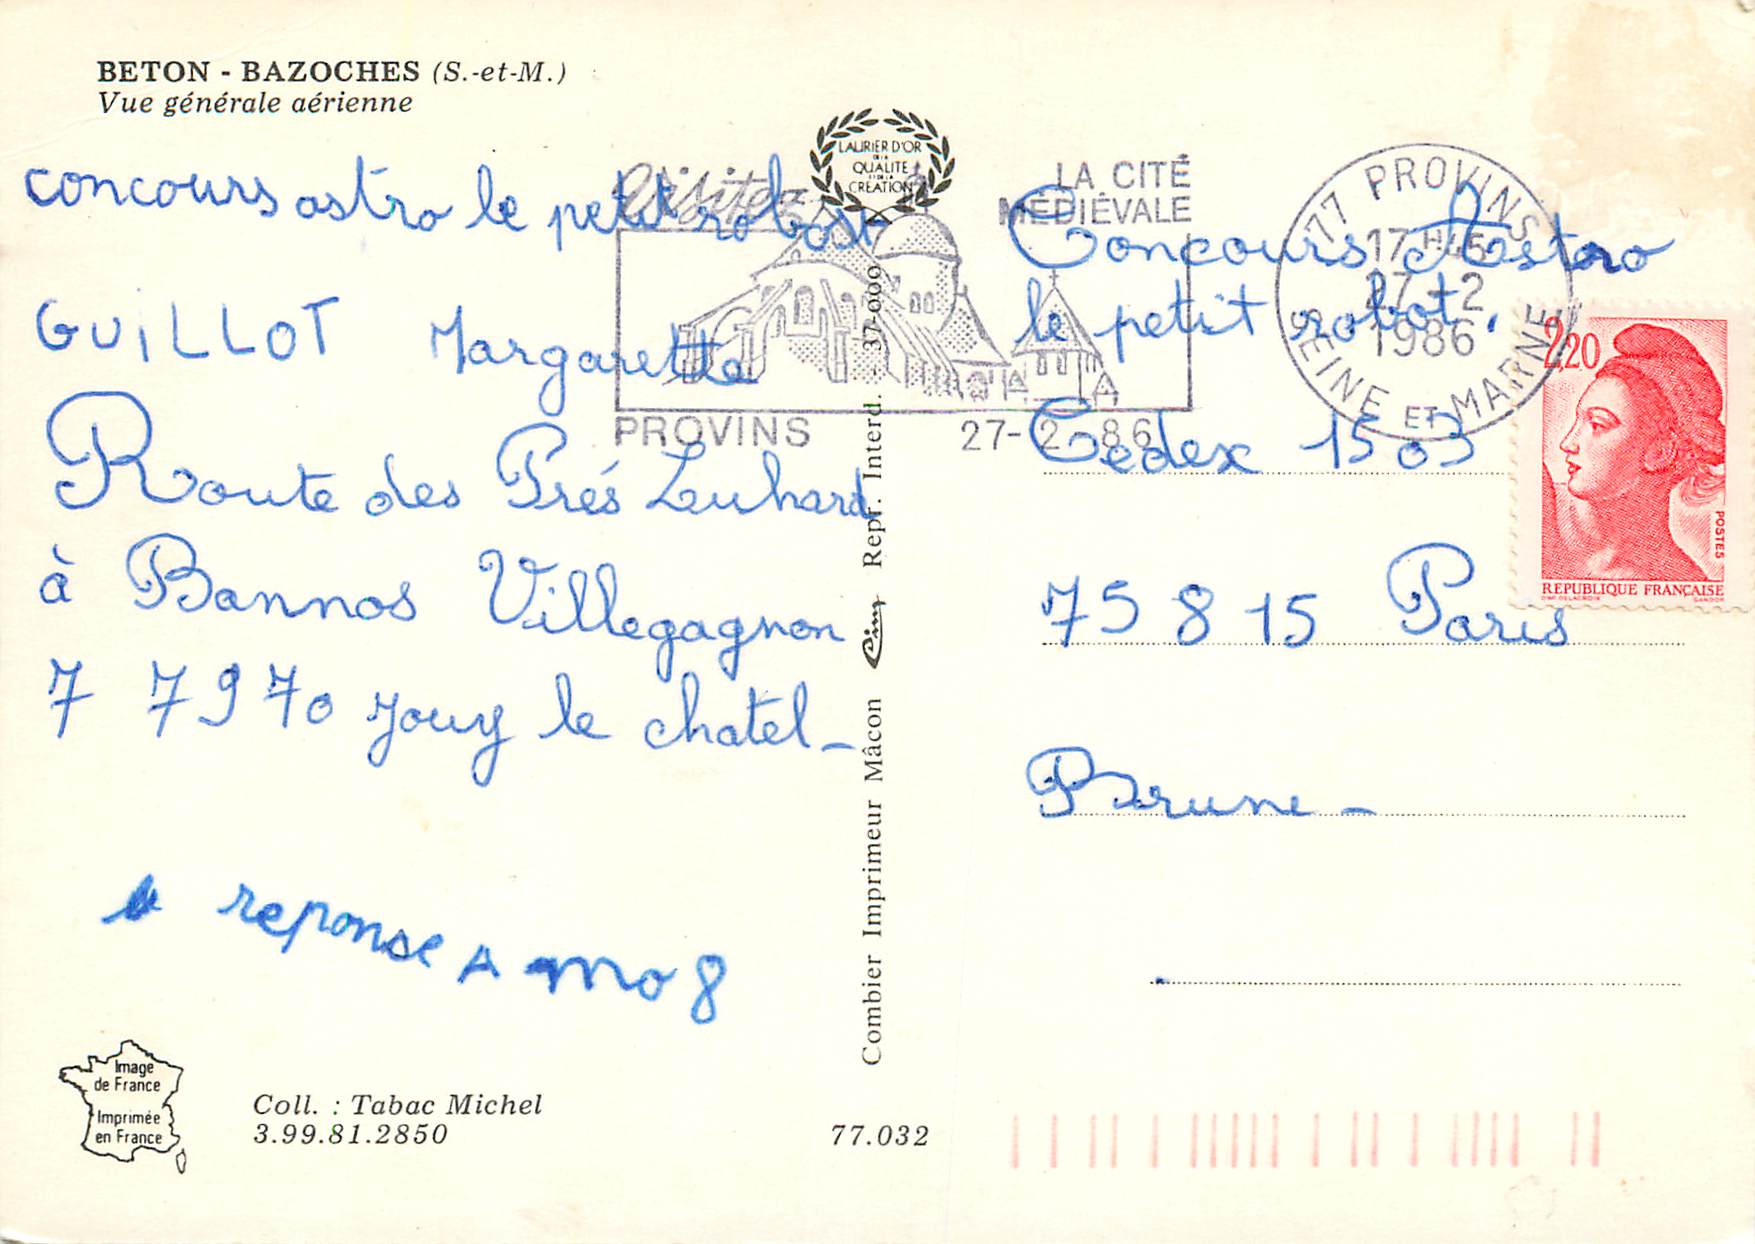 BETON - BAZOCHES (S.-et-M.)
Vue générale aérienne
concours astro le petit robot
GUILLOT Margarette
Route des Prés Luhard
à Bannos Villegagnon
77970 Jouy le chatel -
reponse A mo 8
Image
de France
Imprimée
en France
Coll. : Tabac Michel
3.99.81.2850
77.032
Combier Imprimeur Mâcon Cim Repr. Interd. - 37-000
LAURIER D'OR
DE LA
QUALITE
ET DE LA
CREATION
Visitez
LA CITÉ
MÉDIÉVALE
PROVINS
27-2-86
77 PROVINS
17H45
27-2
1986
SEINE ET MARNE
2,20
POSTES
REPUBLIQUE FRANÇAISE
D'AP. DELACROIX GANDON
Concours Astro
le petit robot.
Cedex 1503
75815 Paris
Brune -